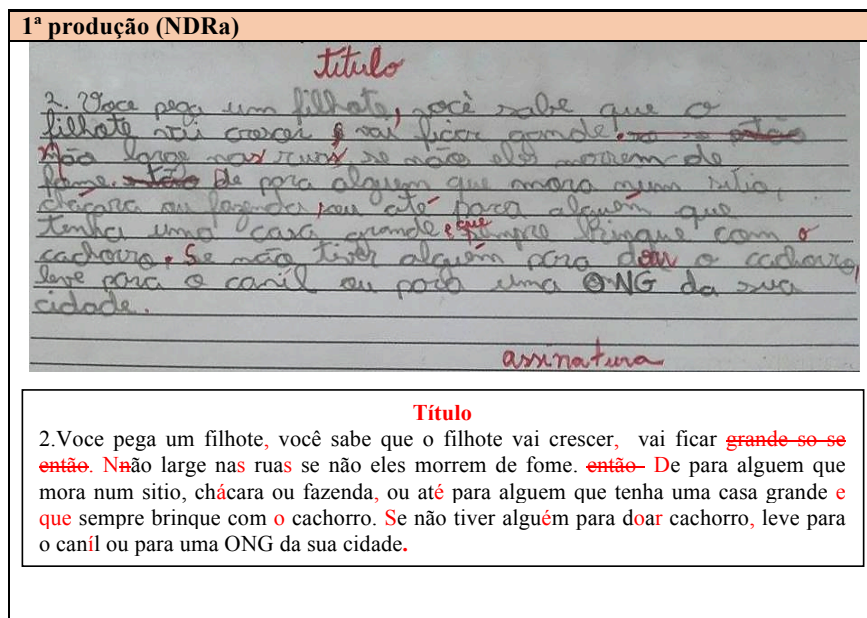 1ª produção (NDRa)
título
2. Voce pega um filhote, você sabe que o
filhote vai crescer, vai ficar grande. so se então
Não large nas ruas, se não eles morrem de
fome. então De para alguem que mora num sitio,
chácara ou fazenda, ou até para alguém que
tenha uma casa grande e que sempre brinque com o
cachorro. Se não tiver alguém para doar o cachorro,
leve para o caníl ou para uma ONG da sua
cidade.
assinatura
Título
2.Voce pega um filhote, você sabe que o filhote vai crescer, vai ficar grande so se
então. Nnão large nas ruas se não eles morrem de fome. então De para alguem que
mora num sitio, chácara ou fazenda, ou até para alguem que tenha uma casa grande e
que sempre brinque com o cachorro. Se não tiver alguém para doar cachorro, leve para
o caníl ou para uma ONG da sua cidade.